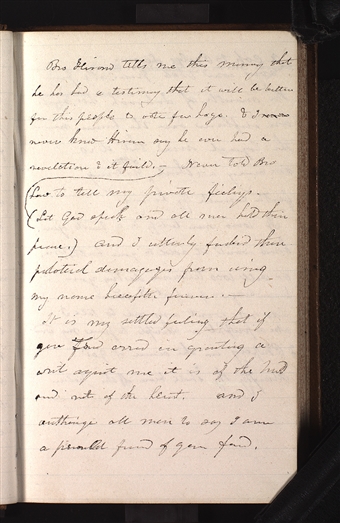 Bro Hiram tells me this morning that
he has had a testimony that it will be better
for this people to vote for Hoge. & I
never knew Hiram say he ever had a
revelation & it faild. — Never told Bro
Law to tell my private feelings.
(Let God speak and all men hold their
peace.) and I utterly forbid these
political demagoges from using
my name hereafter forever. —
It is my settled feeling that if
gov Ford erred in granting a
writ against me it is of the head
and not of the heart. and I
authorize all men to say I am
a personal friend of gov ford.